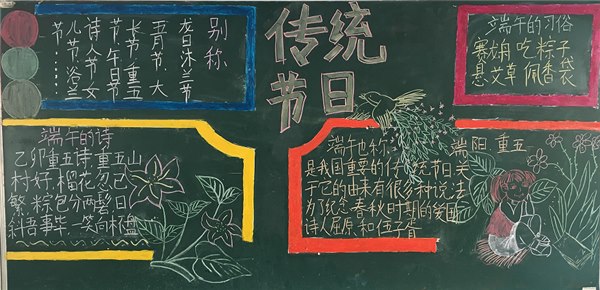 传统
节日
别称
龙日沐兰节
五月节、大
长节、重五
节、午日节
诗人节、女
儿节、浴兰
节……
端午的习俗
赛龙舟 吃粽子
悬艾草 佩香袋
端午的诗
乙卯重五诗:重五山
村好,榴花忽已
繁 粽包分两髻 日
斜吾事毕 一笑向杯盘
端午也称 端阳、重五
是我国重要的传统节日关
于它的由来有很多种说法
为了纪念春秋时期的爱国
诗人屈原和伍子胥